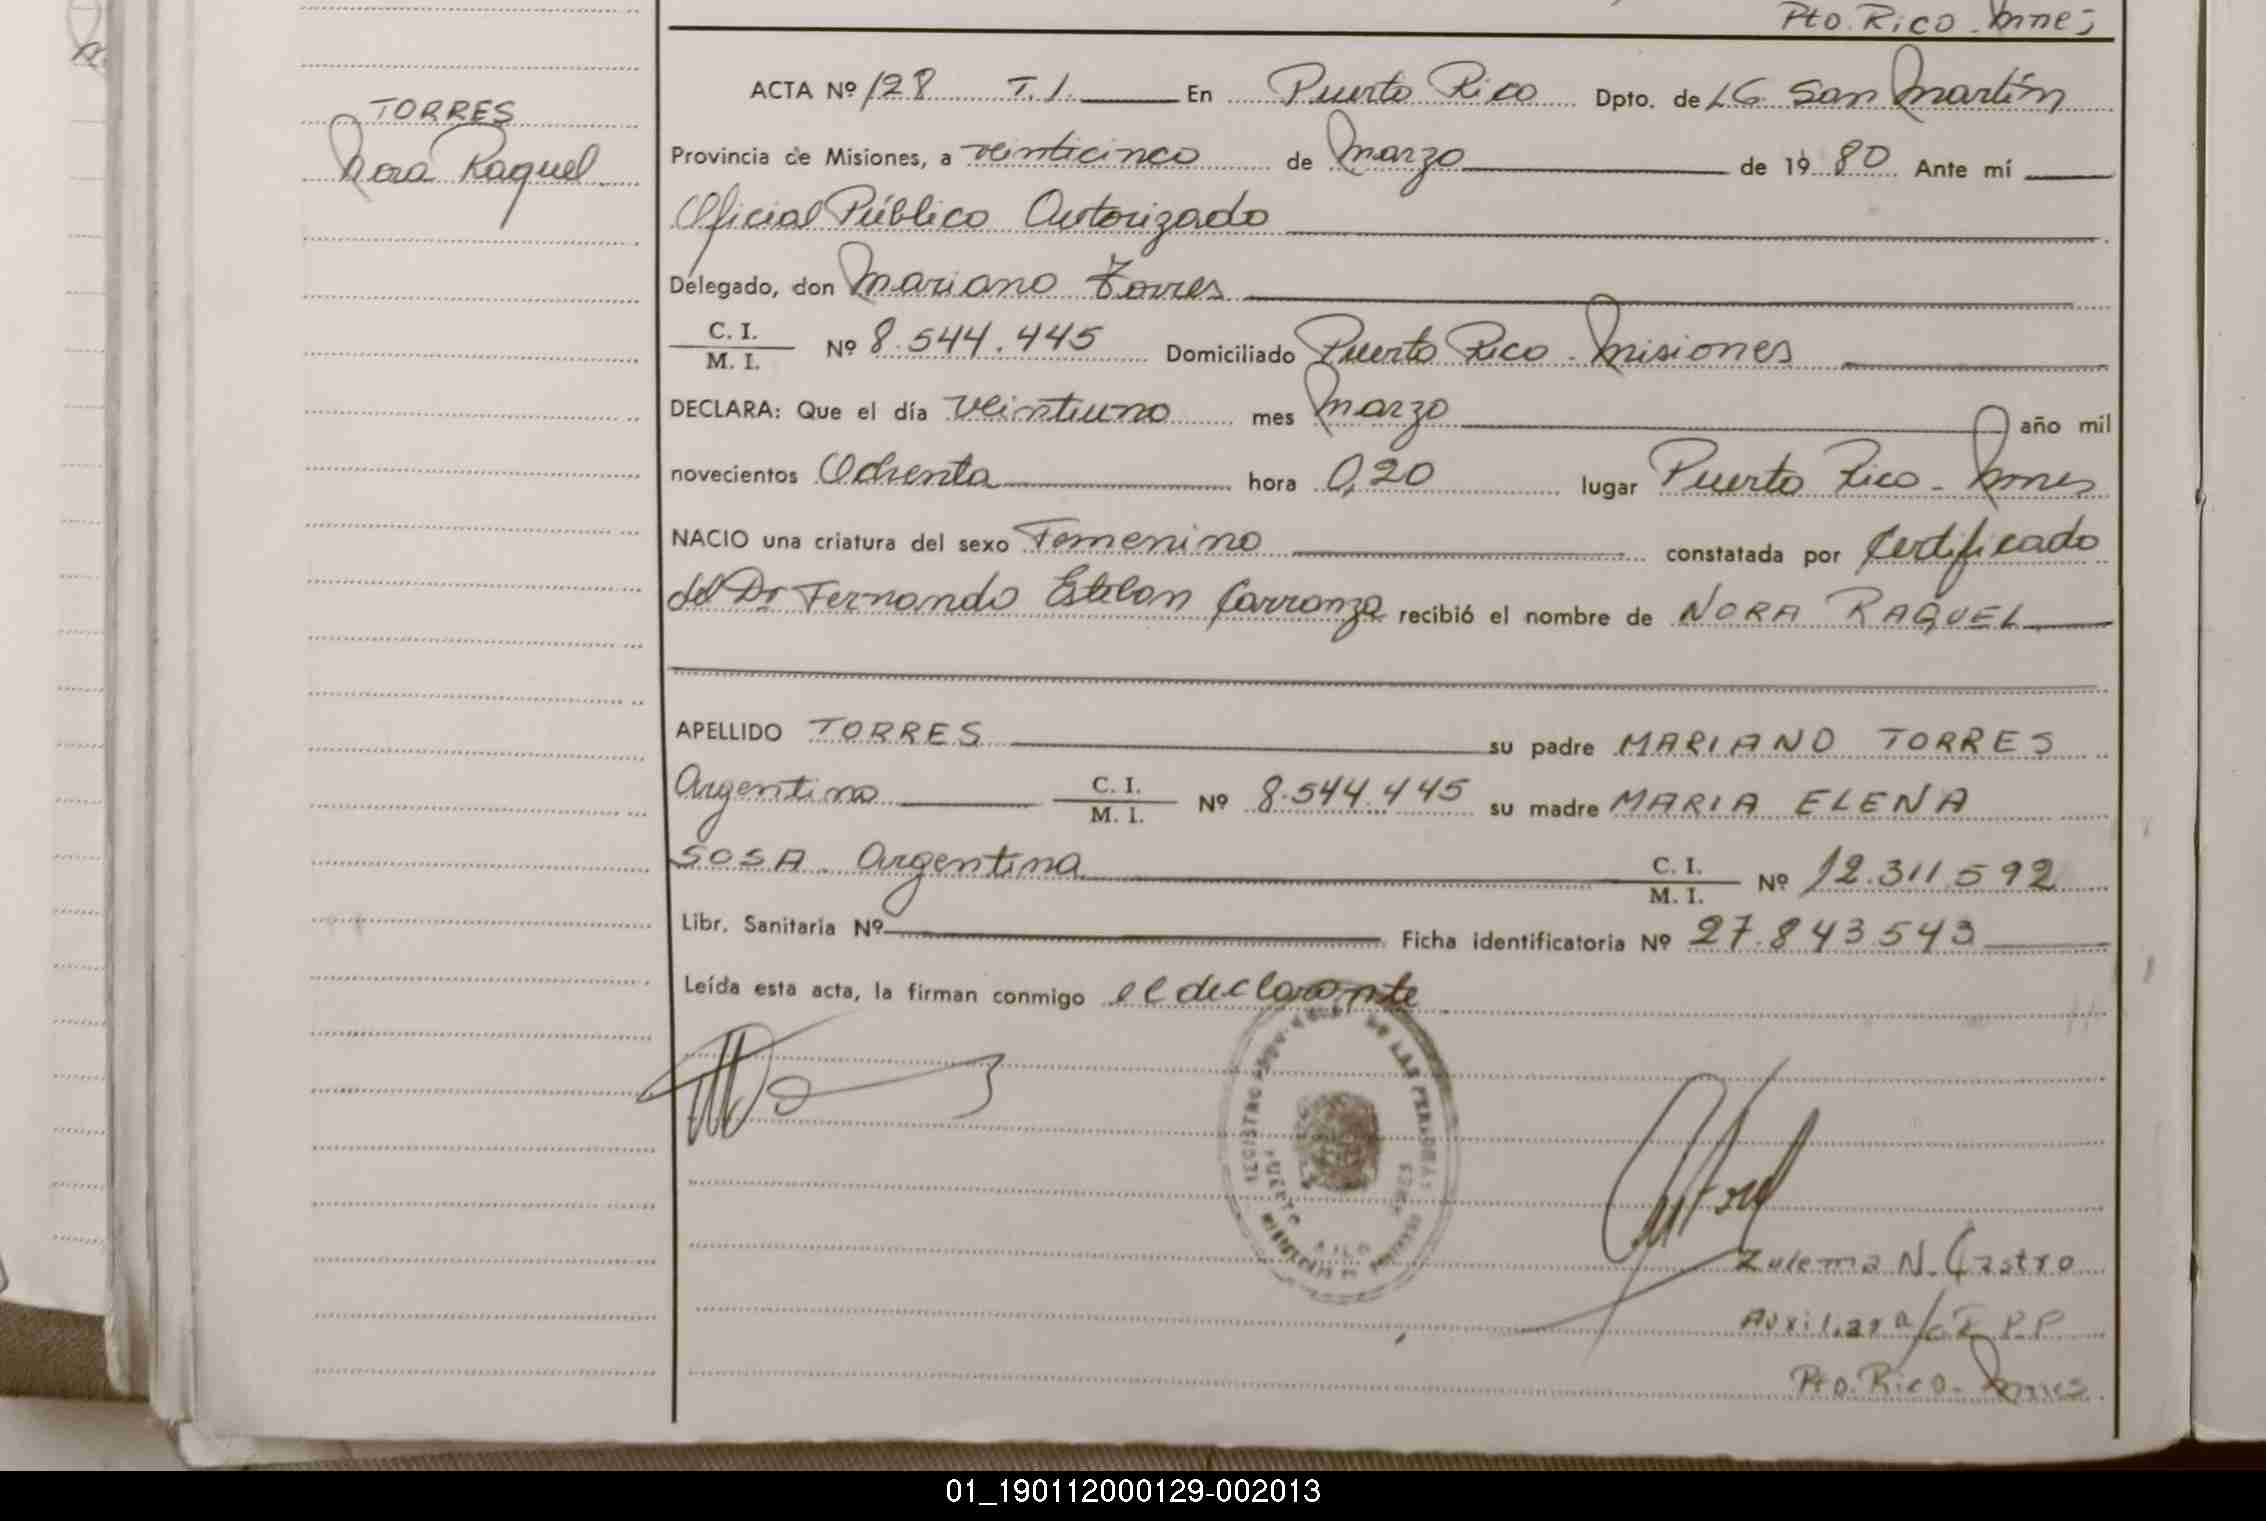 Pto. Rico - Mnes
TORRES
Nora Raquel
ACTA Nº 128 T. I. En Puerto Rico Dpto. de LG San Martín
Provincia de Misiones, a veinticinco de Marzo de 1980 Ante mí
Oficial Público Autorizado
Delegado, don Mariano Torres
C. I.
M. I. Nº 8.544.445 Domiciliado Puerto Rico - Misiones
DECLARA: Que el día veintiuno mes Marzo año mil
novecientos Ochenta hora 0,20 lugar Puerto Rico - Mnes
NACIO una criatura del sexo Femenino constatada por Certificado
del Dr Fernando Esteban Carranza recibió el nombre de NORA RAQUEL
APELLIDO TORRES su padre MARIANO TORRES
Argentino C. I.
M. I. Nº 8.544.445 su madre MARIA ELENA
SOSA. Argentina C. I.
M. I. Nº 12.311.592
Libr. Sanitaria Nº Ficha identificatoria Nº 27.843.543
Leída esta acta, la firman conmigo el declarante
REGISTRO DE LAS PERSONAS
PUERTO RICO
MINISTERIO DE GOBIERNO
Zulema N. Castro
Auxiliar
Pto. Rico - Mnes
01_190112000129-002013